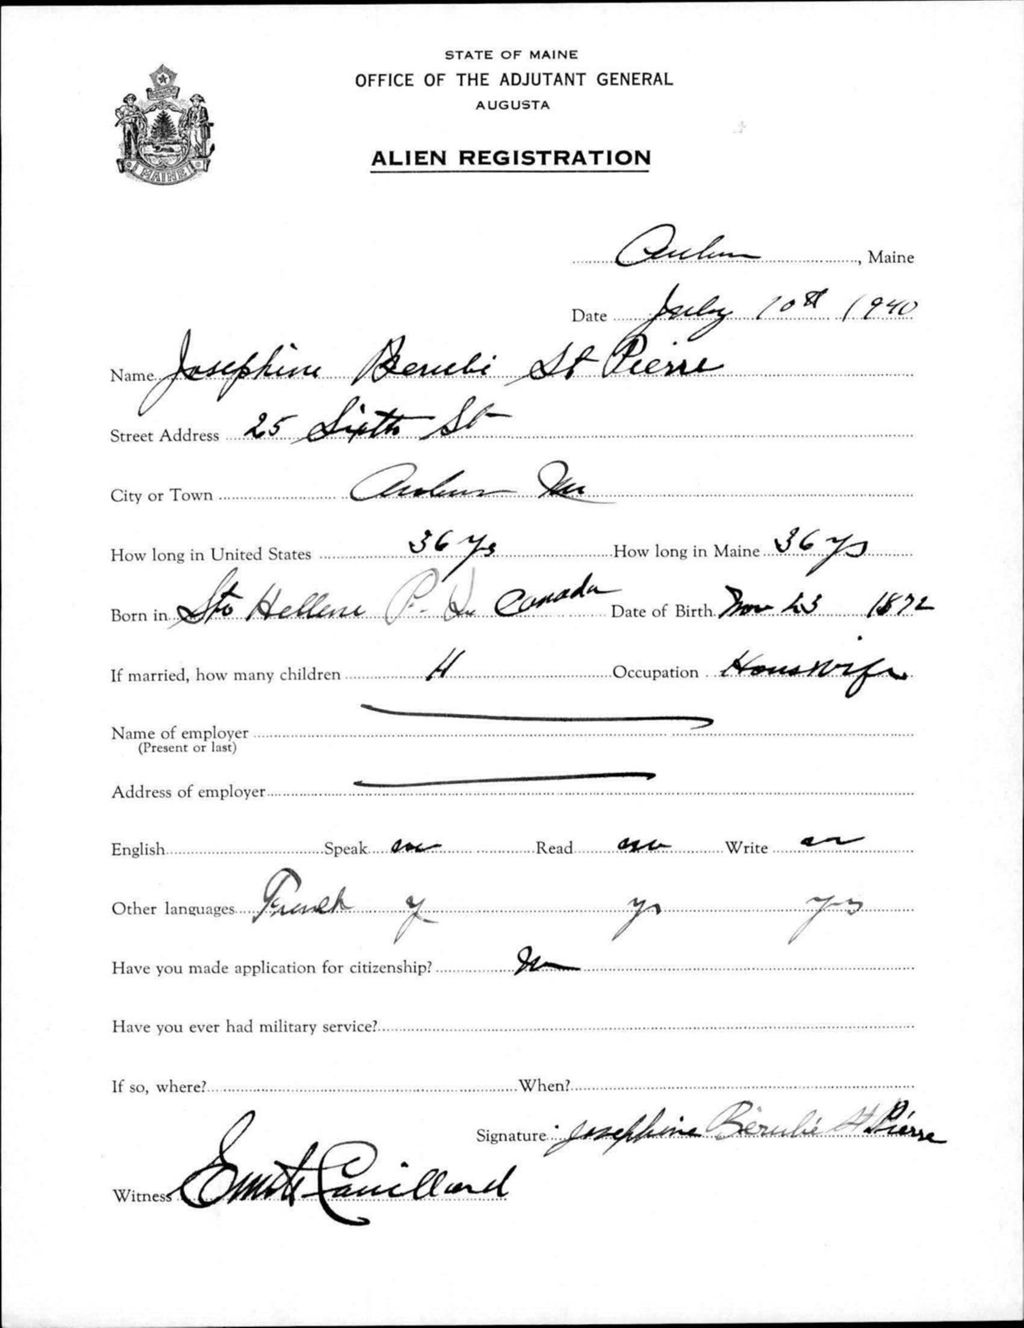 STATE OF MAINE
OFFICE OF THE ADJUTANT GENERAL
AUGUSTA
ALIEN REGISTRATION
MAINE
Auburn, Maine
Date July 10th 1940
Name Josephine Berubi St Pierre
Street Address 25 Sixth St
City or Town Auburn Me
How long in United States 36 ys How long in Maine 36 ys
Born in Ste Hellene P. Qu Canada Date of Birth Nov 23 1872
If married, how many children 4 Occupation Houswife
Name of employer
(Present or last)
Address of employer
English Speak no Read no Write no
Other languages French y ys yes
Have you made application for citizenship? No
Have you ever had military service?
If so, where? When?
Signature Josephine Bérubé St Pierre
Witness